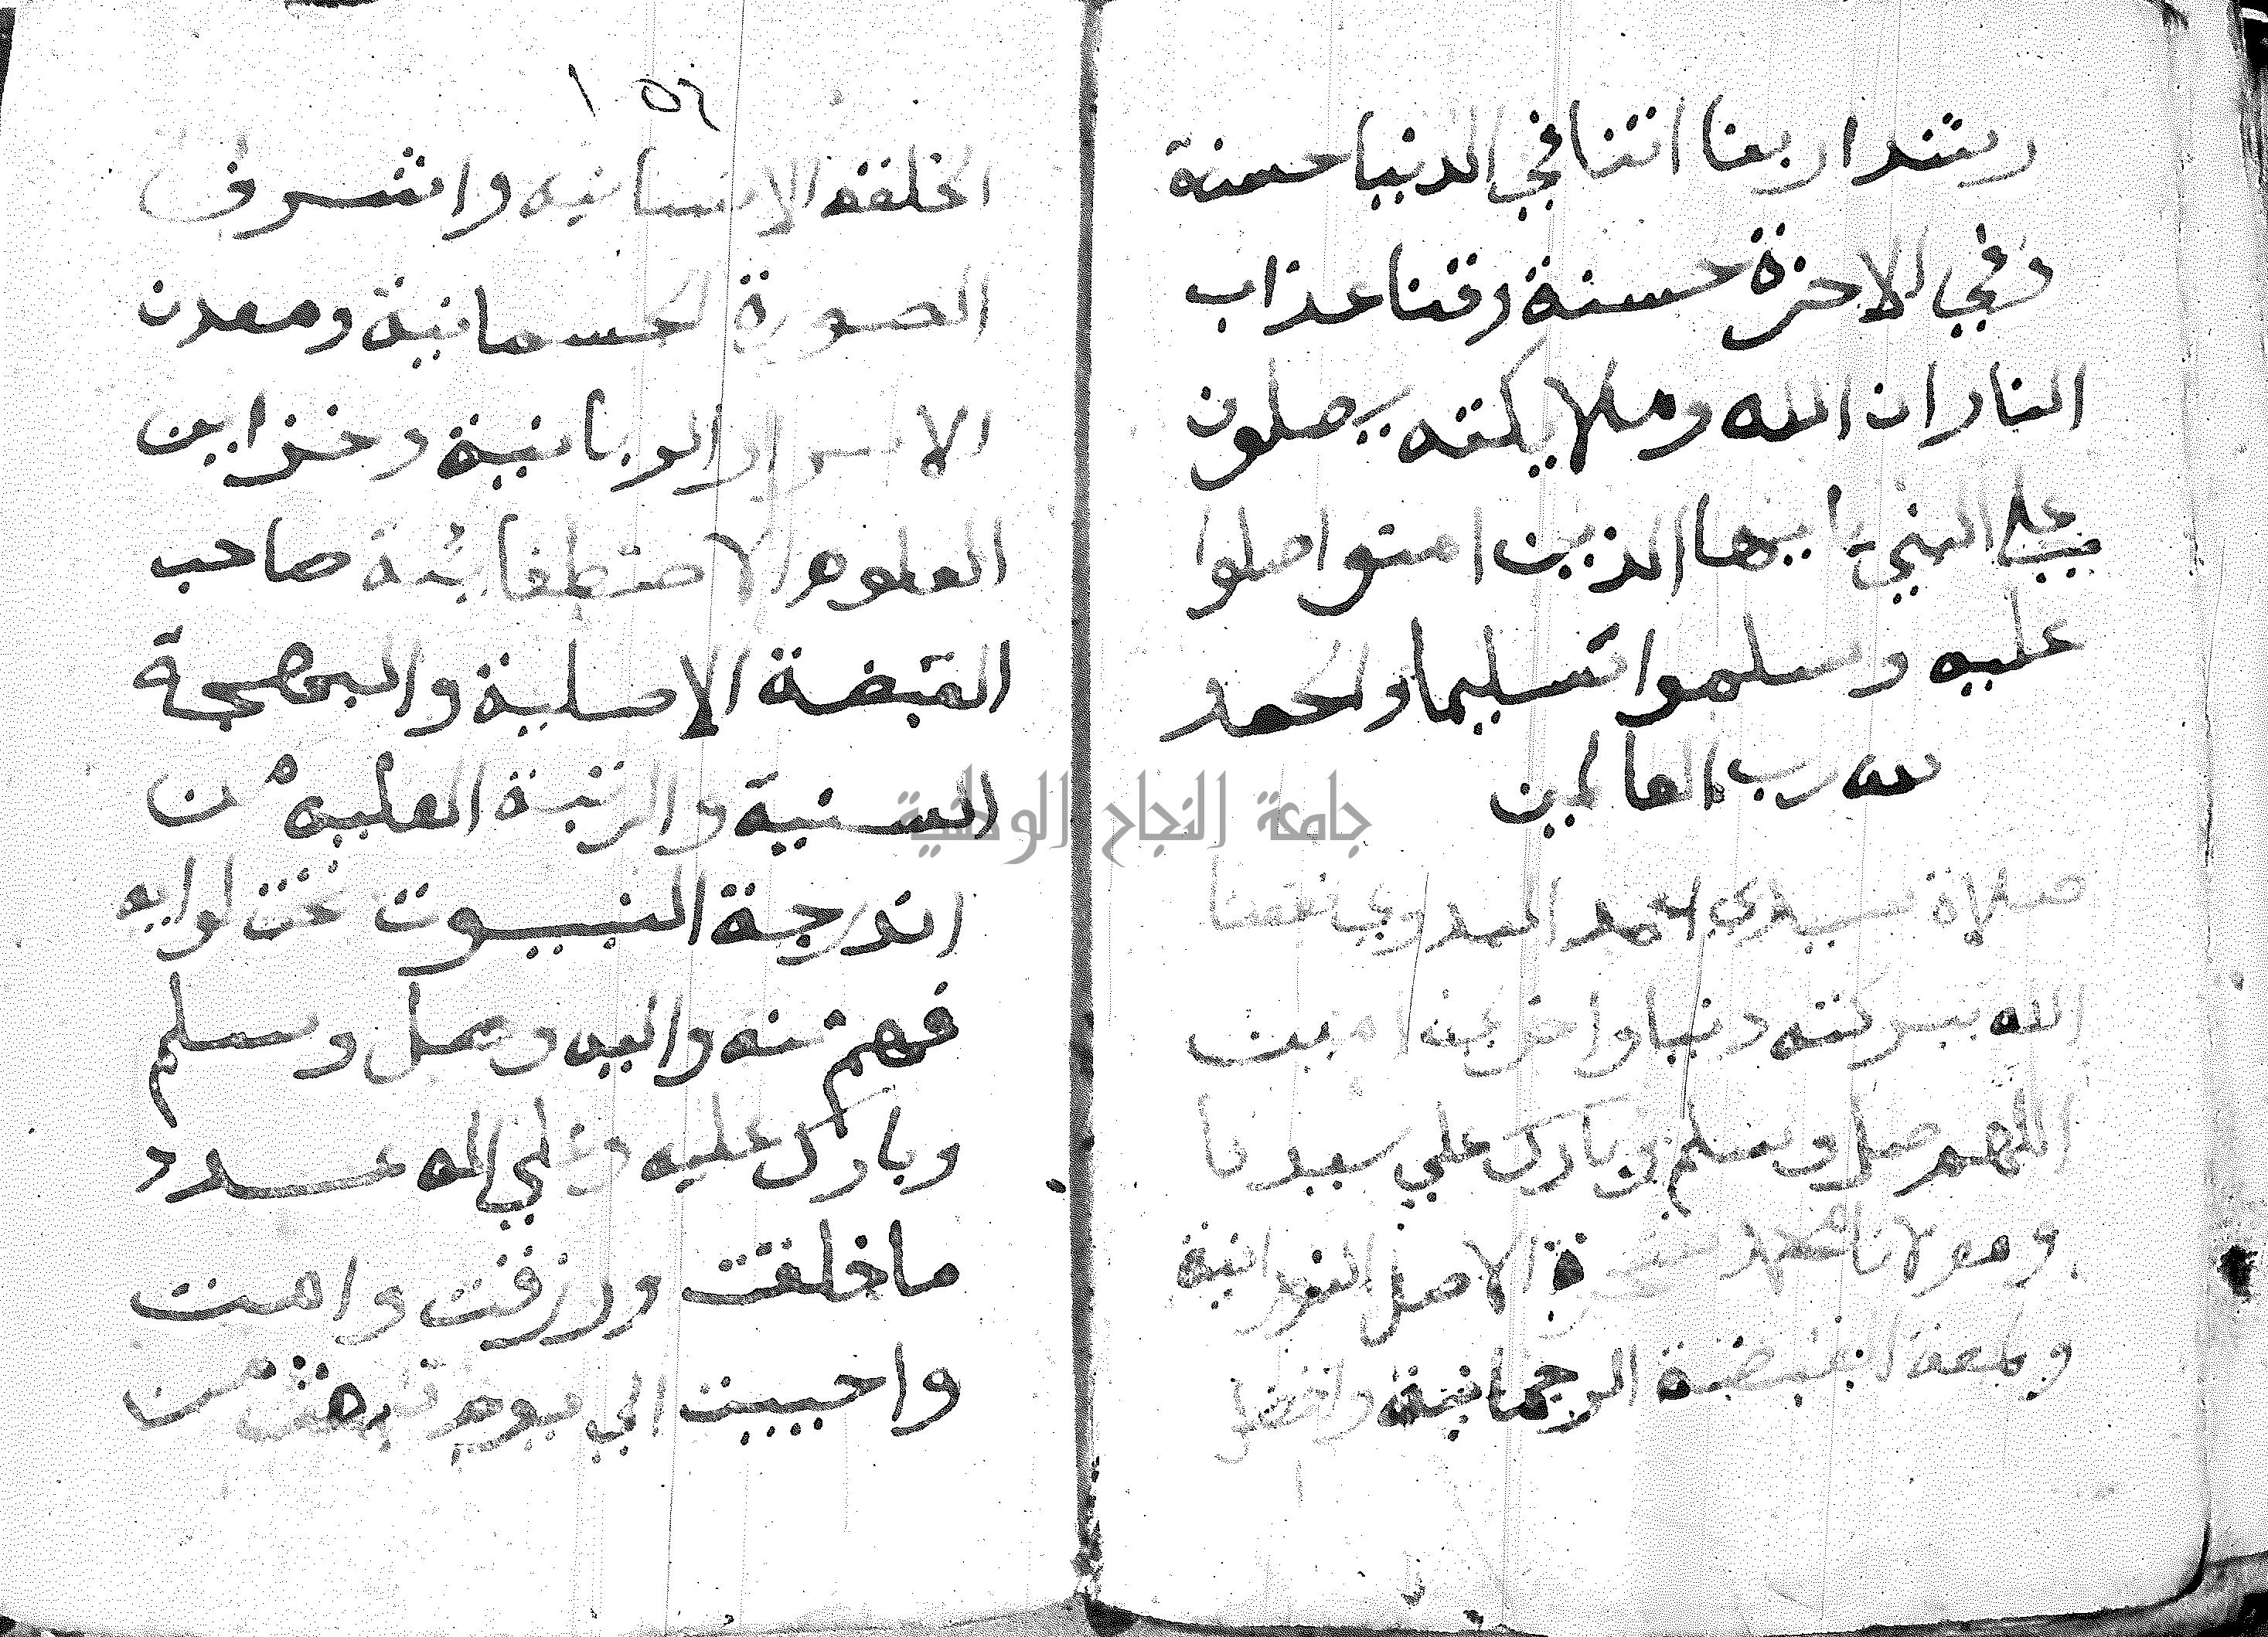 رشدا ربنا اتنا في الدنيا حسنة
وفي الاخرة حسنة وقنا عذاب
النار ان الله وملايكته يصلون
علي النبي يا ايها الذين امنوا صلوا
عليه وسلموا تسليما والحمد
لله رب العالمين
صلاة سيدي احمد البدوي نفعنا
الله ببركته دنيا واخرة امين
اللهم صل وسلم وبارك علي سيدنا
ومولانا محمد شجرة الاصل النورانية
ولمعة القبضة الرحمانية وافضل
١٥٤
الخلقه الانسانيه واشرف
الصورة الجسمانية ومعدن
الاسرار الربانية وخزاين
العلوم الاصطفائية صاحب
القبضة الاصلية والبهجة
السنية والرتبة العليه من
اندرجة النبيون تحت لوايه
فهم منه واليه وصل وسلم
وبارك عليه وعلي اله عدد
ما خلقت ورزقت وامت
واحييت الي يوم تبعث من
جامعة النجاح الوطنية